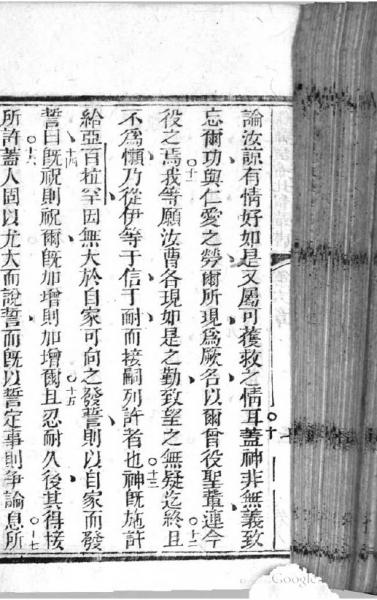 論汝諒有情好如是又屬可獲救之情耳○十蓋神非無義致
忘爾功與仁愛之勞爾所現爲厥名以爾曾役聖輩連今
役之焉○十一我等願汝曹各現如是之勤致望之無疑迄終○十二且
不爲懶乃從伊等于信于耐而接嗣列許者也○十三神既施許
給亞百拉罕因無大於自家可向之發誓則以自家而發
誓○十四曰既祝則祝爾既加增則加增爾○十五且忍耐久後其得接
所許○十六蓋人固以尤大而說誓而既以誓定事則爭論息○十七所
Google